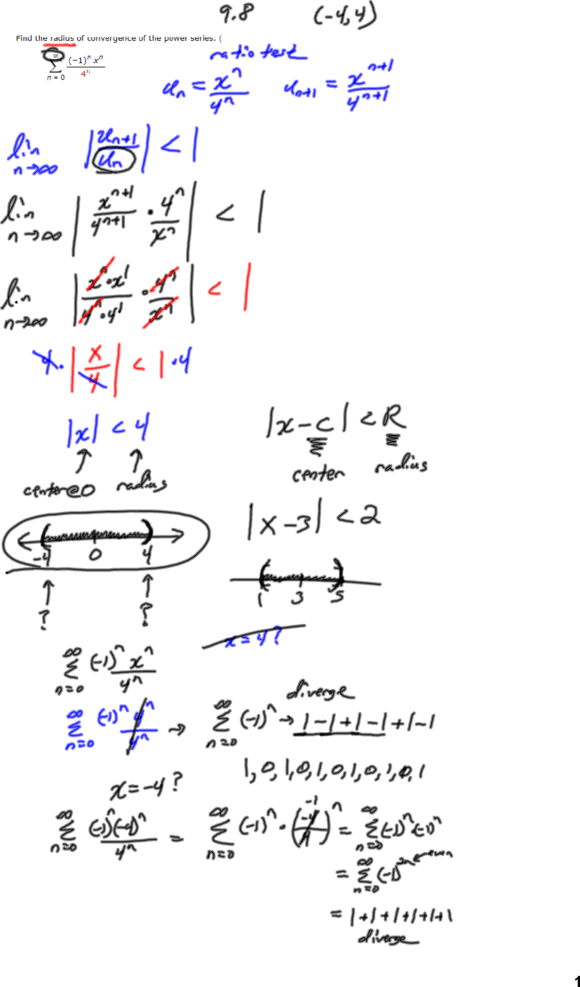 9.8 (-4,4)
Find the radius of convergence of the power series. (
∞ Σ n = 0 (-1)ⁿ xⁿ / 4ⁿ
ratio test
uₙ = xⁿ/4ⁿ uₙ₊₁ = xⁿ⁺¹/4ⁿ⁺¹
lim n→∞ |uₙ₊₁/uₙ| < 1
lim n→∞ |xⁿ⁺¹/4ⁿ⁺¹ · 4ⁿ/xⁿ| < 1
lim n→∞ |xⁿ·x¹/4ⁿ·4¹ · 4ⁿ/xⁿ| < 1
4·|x/4| < 1·4
|x| < 4 |x-c| < R
center@0 radius center radius
|x-3| < 2
-4 0 4
1 3 5
? ?
x=4?
∞ Σ n=0 (-1)ⁿ xⁿ/4ⁿ
diverge
∞ Σ n=0 (-1)ⁿ 4ⁿ/4ⁿ → ∞ Σ n=0 (-1)ⁿ → 1-1+1-1+1-1
1,0,1,0,1,0,1,0,1,0,1
x=-4?
∞ Σ n=0 (-1)ⁿ(-4)ⁿ/4ⁿ = ∞ Σ n=0 (-1)ⁿ·(-4/4)ⁿ -1 = ∞ Σ n=0 (-1)ⁿ(-1)ⁿ
= ∞ Σ n=0 (-1)²ⁿ ← even
= 1+1+1+1+1+1
diverge
1